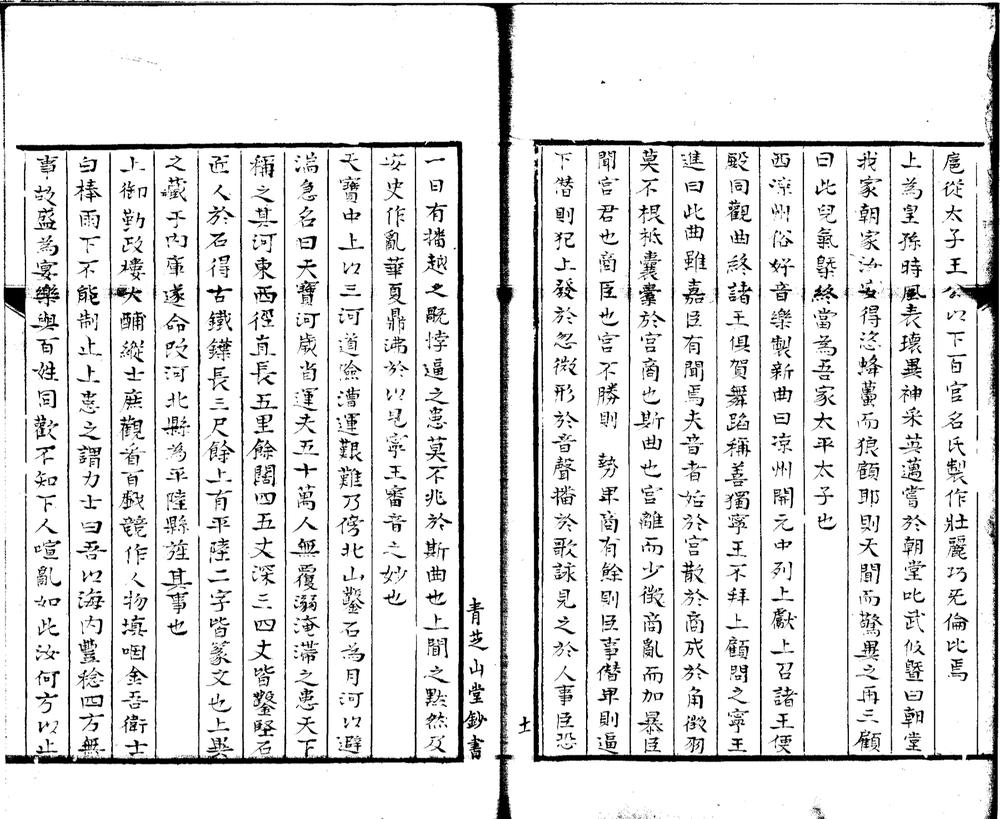 扈從太子王公以下百官名氏製作壯麗巧無倫比焉
上為皇孫時風表瓌異神采英邁嘗於朝堂叱武攸暨曰朝堂
我家朝家汝安得恣蜂蠆而狼顧耶則天聞而驚異之再三顧
曰此兒氣槩終當為吾家太平太子也
西凉州俗好音樂製新曲曰凉州開元中列上獻上召諸王便
殿同觀曲終諸王俱賀舞蹈稱善獨寧王不拜上顧問之寧王
進曰此曲雖嘉臣有聞焉夫音者始於宮散於商成於角徵羽
莫不根柢囊橐於宮商也斯曲也宮離而少徵商亂而加暴臣
聞宮君也商臣也宮不勝則 勢卑商有餘則臣事僭卑則逼
下僭則犯上發於忽微形於音聲播於歌詠見之於人事臣恐
一日有播越之既悖逼之患莫不兆於斯曲也上聞之黙然及
安史作亂華夏鼎沸於以見寧王審音之妙也
天寶中上以三河道險漕運艱難乃傍北山鑿石為月河以避
湍急名曰天寶河歲省運夫五十萬人無覆溺淹滯之患天下
稱之其河東西徑直長五里餘闊四五丈深三四丈皆鑿堅石
匠人於石得古鐵鏵長三尺餘上有平陸二字皆篆文也上異
之藏于內庫遂命改河北縣為平陸縣旌其事也
上御勤政樓大酺縱士庶觀看百戲競作人物填咽金吾衛士
白棒雨下不能制止上患之謂力士曰吾以海內豐稔四方無
事故盛為宴樂與百姓同歡不知下人喧亂如此汝何方以止
青芝山堂鈔書
十